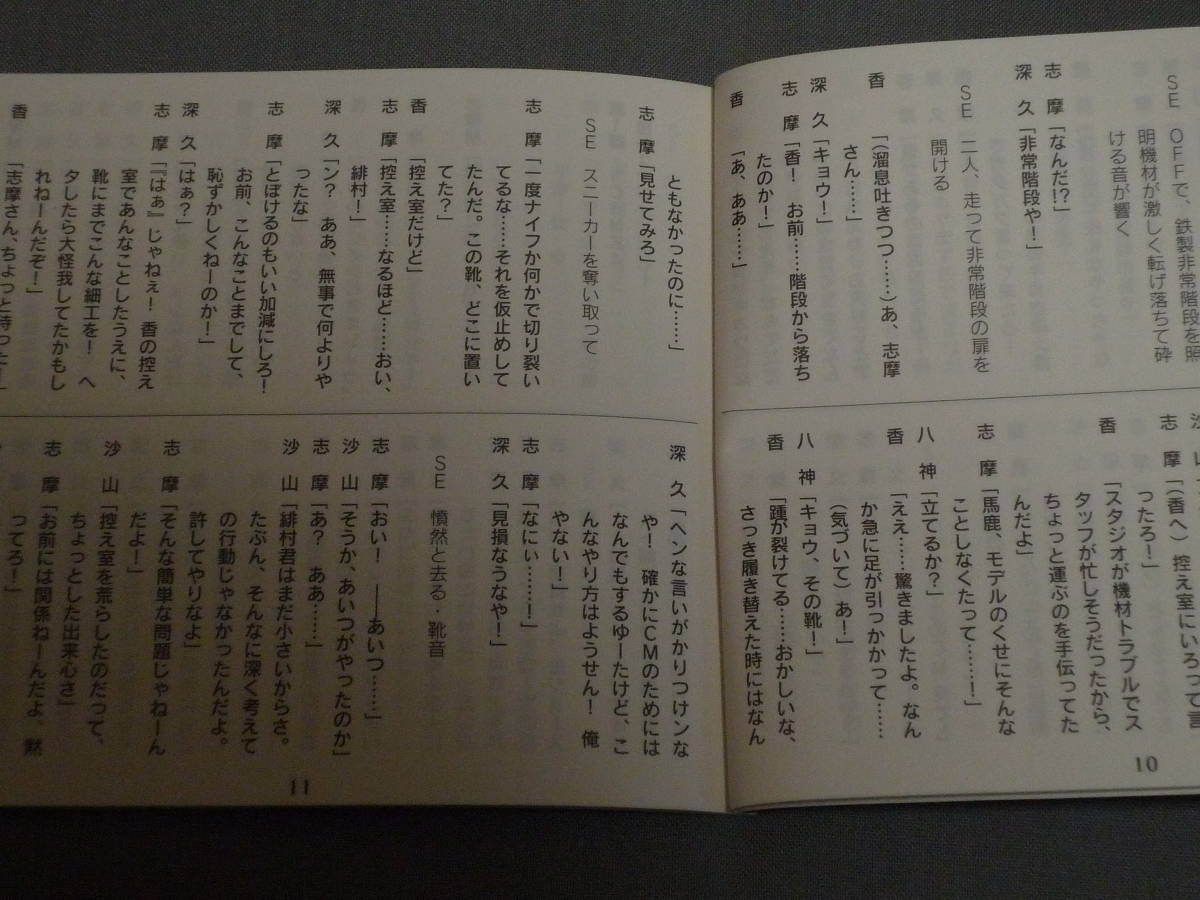 SE　OFFで、鉄製非常階段を照
明機材が激しく転げ落ちて砕
ける音が響く
志　摩「なんだ!?」
深　久「非常階段や！」
SE　二人、走って非常階段の扉を
開ける
香　　「（溜息吐きつつ……）あ、志摩
さん……」
深　久「キョウ！」
志　摩「香！　お前……階段から落ち
たのか！」
香　　「あ、ああ……」
志　摩「（香へ）控え室にいろって言
ったろ！」
香　　「スタジオが機材トラブルでス
タッフが忙しそうだったから、
ちょっと運ぶのを手伝ってた
んだよ」
志　摩「馬鹿、モデルのくせにそんな
ことしなくたって……！」
八　神「立てるか？」
香　　「ええ……驚きましたよ。なん
か急に足が引っかかって……
（気づいて）あ！」
八　神「キョウ、その靴！」
香　　「踵が裂けてる……おかしいな、
さっき履き替えた時にはなん
10
ともなかったのに……」
志　摩「見せてみろ」
SE　スニーカーを奪い取って
志　摩「一度ナイフか何かで切り裂い
てるな……それを仮止めして
たんだ。この靴、どこに置い
てた？」
香　　「控え室だけど」
志　摩「控え室……なるほど……おい、
緋村！」
深　久「ン？　ああ、無事で何よりや
ったな」
志　摩「とぼけるのもいい加減にしろ！
お前、こんなことまでして、
恥ずかしくねーのか！」
深　久「はぁ？」
志　摩「『はぁ』じゃねぇ！　香の控え
室であんなことしたうえに、
靴にまでこんな細工を！　ヘ
タしたら大怪我してたかもし
れねーんだぞ！」
香　　「志摩さん、ちょっと待った！」
深　久「ヘンな言いがかりつけンな
や！　確かにCMのためには
なんでもするゆーたけど、こ
んなやり方はようせん！　俺
やない！」
志　摩「なにぃ……！」
深　久「見損なうなや！」
SE　憤然と去る・靴音
志　摩「おい！　――あいつ……」
沙　山「そうか、あいつがやったのか」
志　摩「あ？　ああ……」
沙　山「緋村君はまだ小さいからさ。
たぶん、そんなに深く考えて
の行動じゃなかったんだよ。
許してやりなよ」
志　摩「そんな簡単な問題じゃねーん
だよ！」
沙　山「控え室を荒らしたのだって、
ちょっとした出来心さ」
志　摩「お前には関係ねーんだよ。黙
ってろ！」
11